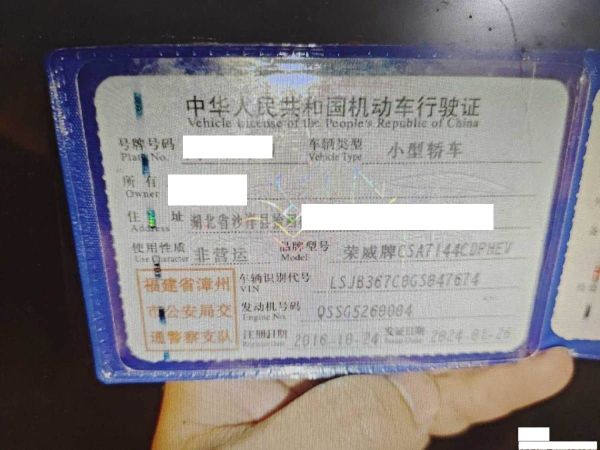 中华人民共和国机动车行驶证
Vehicle License of the People's Republic of China
号牌号码 车辆类型 小型轿车
Plate No. Vehicle Type
所有
Owner
住址 湖北省沙洋县
Address
使用性质 非营运 品牌型号 荣威牌CSA7144CDPHEV
Use Character Model
福建省漳州 车辆识别代号
VIN
市公安局交 发动机号码
Engine No.
通警察支队 注册日期 2016-10-24 发证日期
Register Date Issue Date